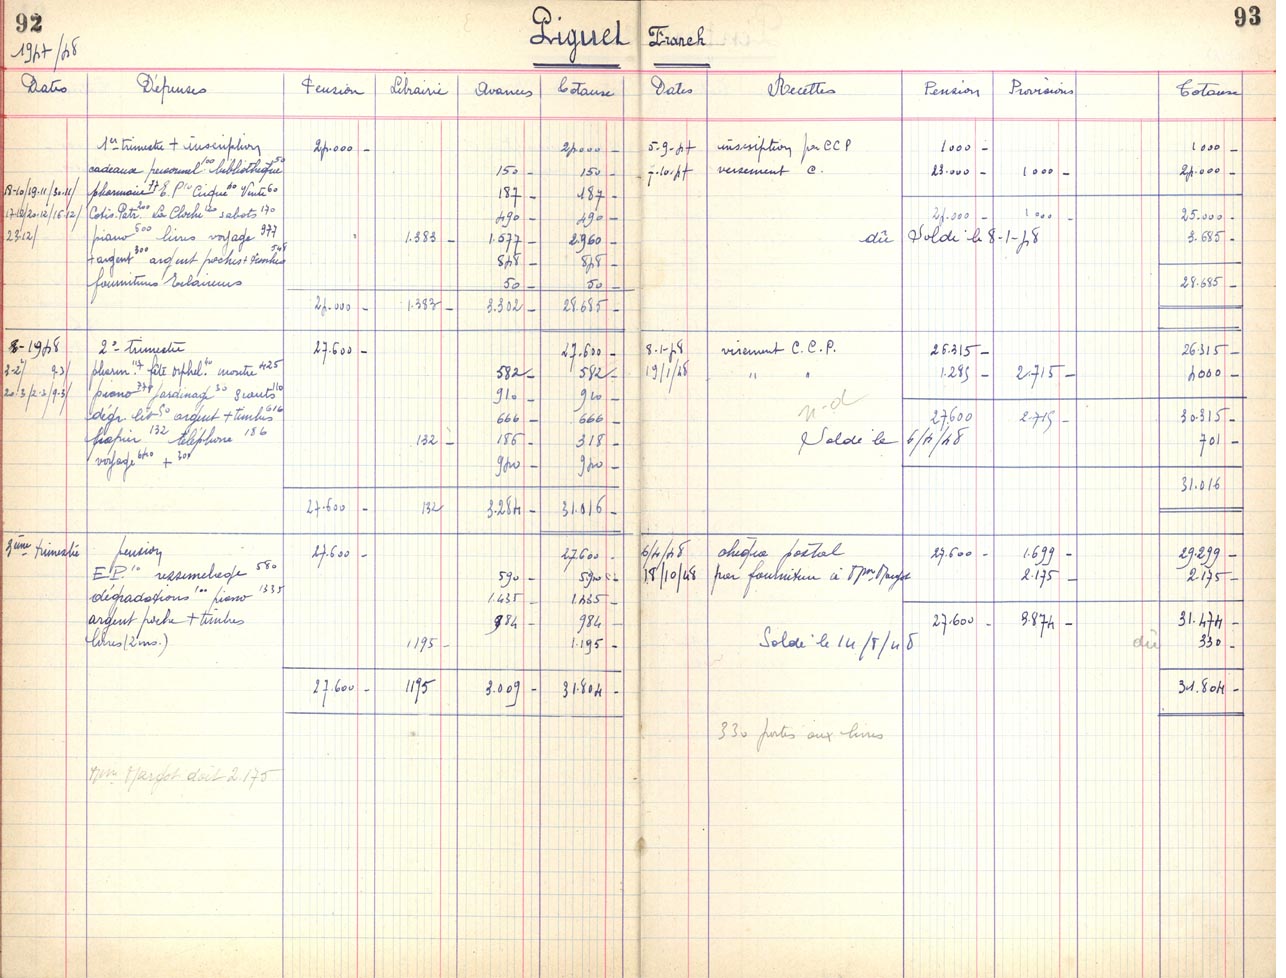 92
1947/48
Piguet Franck
93
Dates Dépenses Pension Librairie Avances Totaux
1er trimestre + inscription 24.000 - 24.000 -
cadeaux personnel 100 bibliothèque 50 150 - 150 -
18-10/19.11/30.11/ pharmacie 77 E.P 10 Cirque 40 Vente 60 187 - 187 -
17-12/20.12/16-12/ Cotis. Patr. 200 La Cloche 120 sabots 170 490 - 490 -
23.12/ piano 600 livres voyage 977 1.383 - 1.577 - 2.960 -
+ argent 300 argent poche + timbres 548 848 - 848 -
fournitures Eclaireurs 50 - 50 -
24.000 - 1.383 - 3.302 - 28.685 -
8-1948 2e trimestre 27.600 - 27.600 -
pharm. 117 fête orphel. 40 montre 425 582 - 582 -
20.3/2-3/9-3/ piano 770 jardinage 30 gants 110 910 - 910 -
dégr. lit 50 argent + timbres 616 666 - 666 -
papier 132 téléphone 186 132 - 186 - 318 -
voyage 640 + 300 940 - 940 -
27.600 - 132 3.284 - 31.016 -
3ème trimestre pension 27.600 - 27.600 -
E.P. 10 ressemelage 580 590 - 590 -
dégradations 100 piano 1335 1.435 - 1.435 -
argent poche + timbres 984 - 984 -
livres (2 ms.) 1195 - 1.195 -
27.600 - 1195 - 3.009 - 31.804 -
Mme Margot doit 2.175
Dates Recettes Pension Provisions Totaux
5-9-47 inscription par CCP 1000 - 1000 -
7-10-47 versement C. 23.000 - 1000 - 24.000 -
24.000 - 1000 - 25.000 -
dû Solde le 8-1-48 3.685 -
28.685 -
8-1-48 virement C.C.P. 26.315 - 26.315 -
19/1/48 " " 1.285 - 2.715 - 4000 -
27.600 2.715 - 30.315 -
Solde le 6/4/48 701 -
31.016
6/4/48 chèque postal 27.600 - 1.699 - 29.299 -
18/10/48 par fourniture à Mme Margot 2.175 - 2.175 -
27.600 - 3.874 - 31.474 -
Solde le 14/8/48 dû 330 -
31.804 -
330 portés aux livres